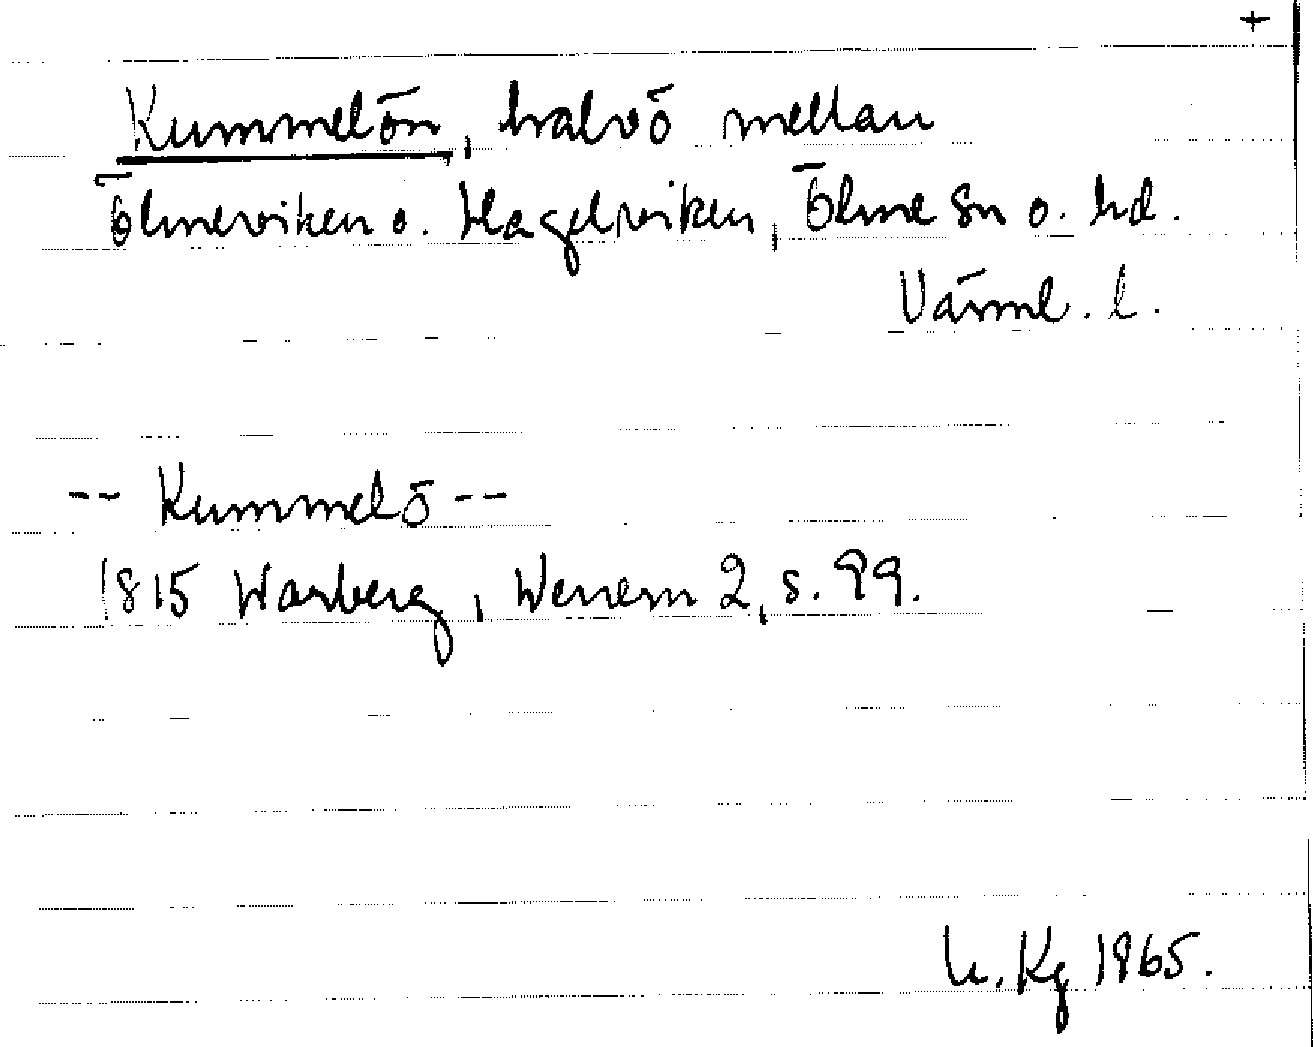 +
Kummelön, halvö mellan
Ölmeviken o. Hagelviken, Ölme sn o. hd.
Värml. l.
-- Kummelö --
1815 Warberg, Wenern 2, s. 99.
U. Kg 1965.